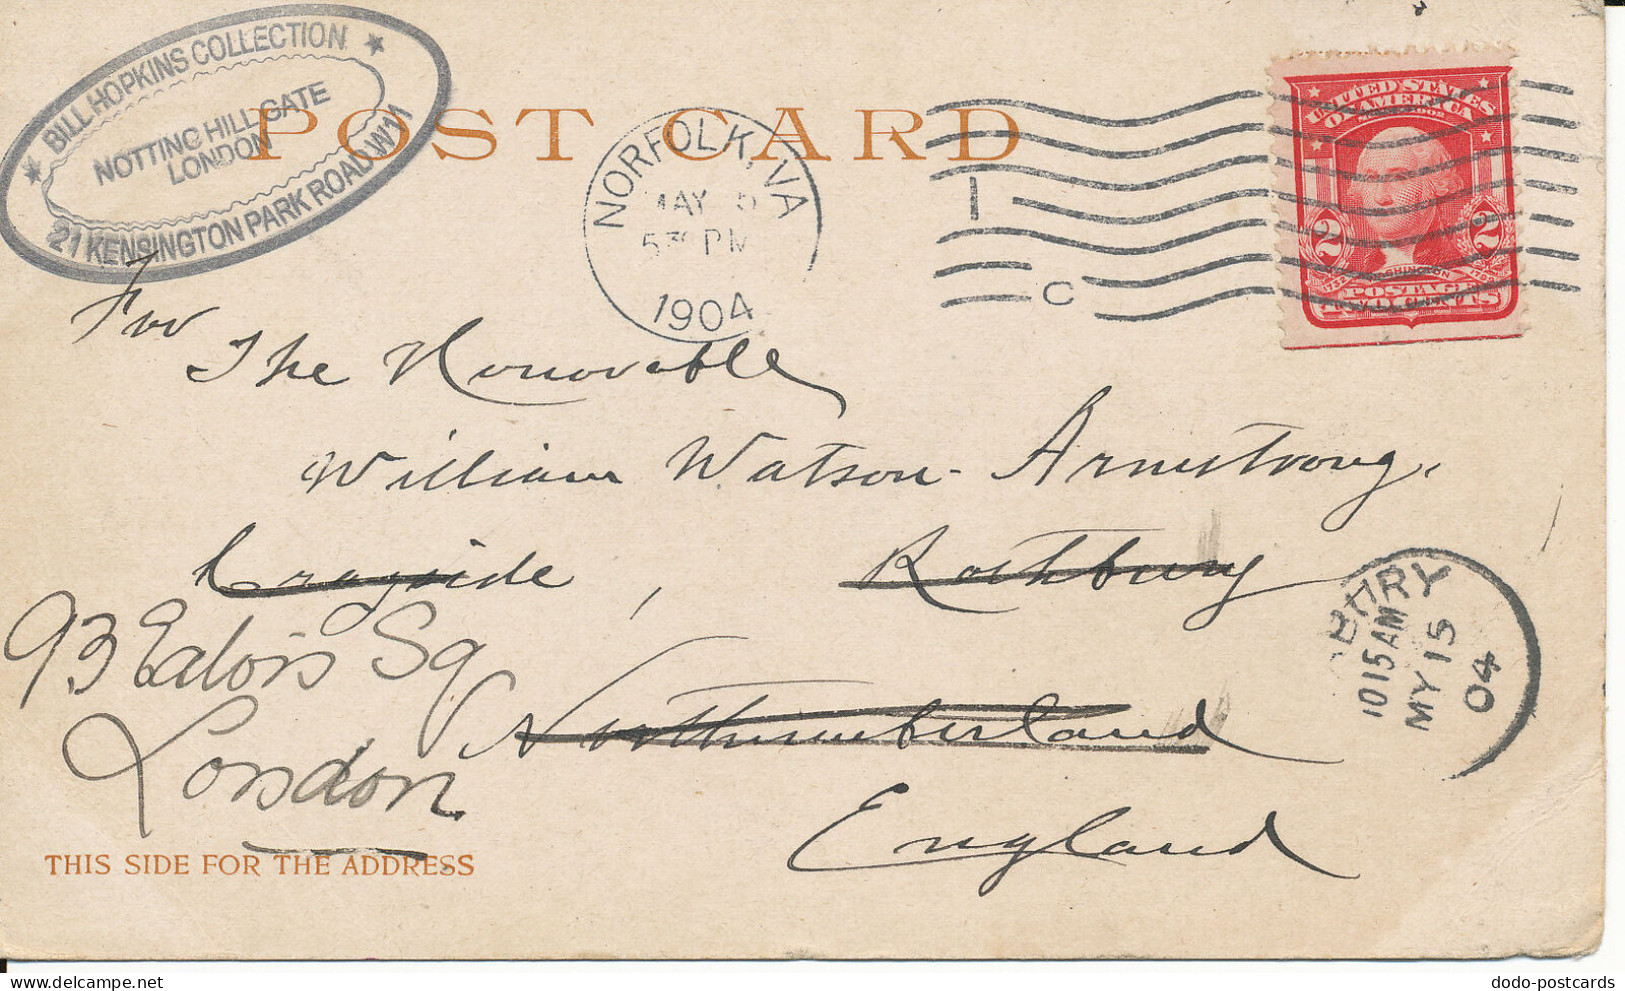 BILL HOPKINS COLLECTION
NOTTING HILL GATE
LONDON
21 KENSINGTON PARK ROAD W11
POST CARD
NORFOLK, VA
MAY 5
5 30 PM
1904
1
C
UNITED STATES
OF AMERICA
SERIES 1902
2 2
WASHINGTON
1732 1799
POSTAGE
TWO CENTS
For
The Honorable
William Watson-Armstrong,
Cragside, Rothbury
Northumberland
England
93 Eaton Sq
London
BURY
1015AM
MY 15
04
THIS SIDE FOR THE ADDRESS
dodo-postcards